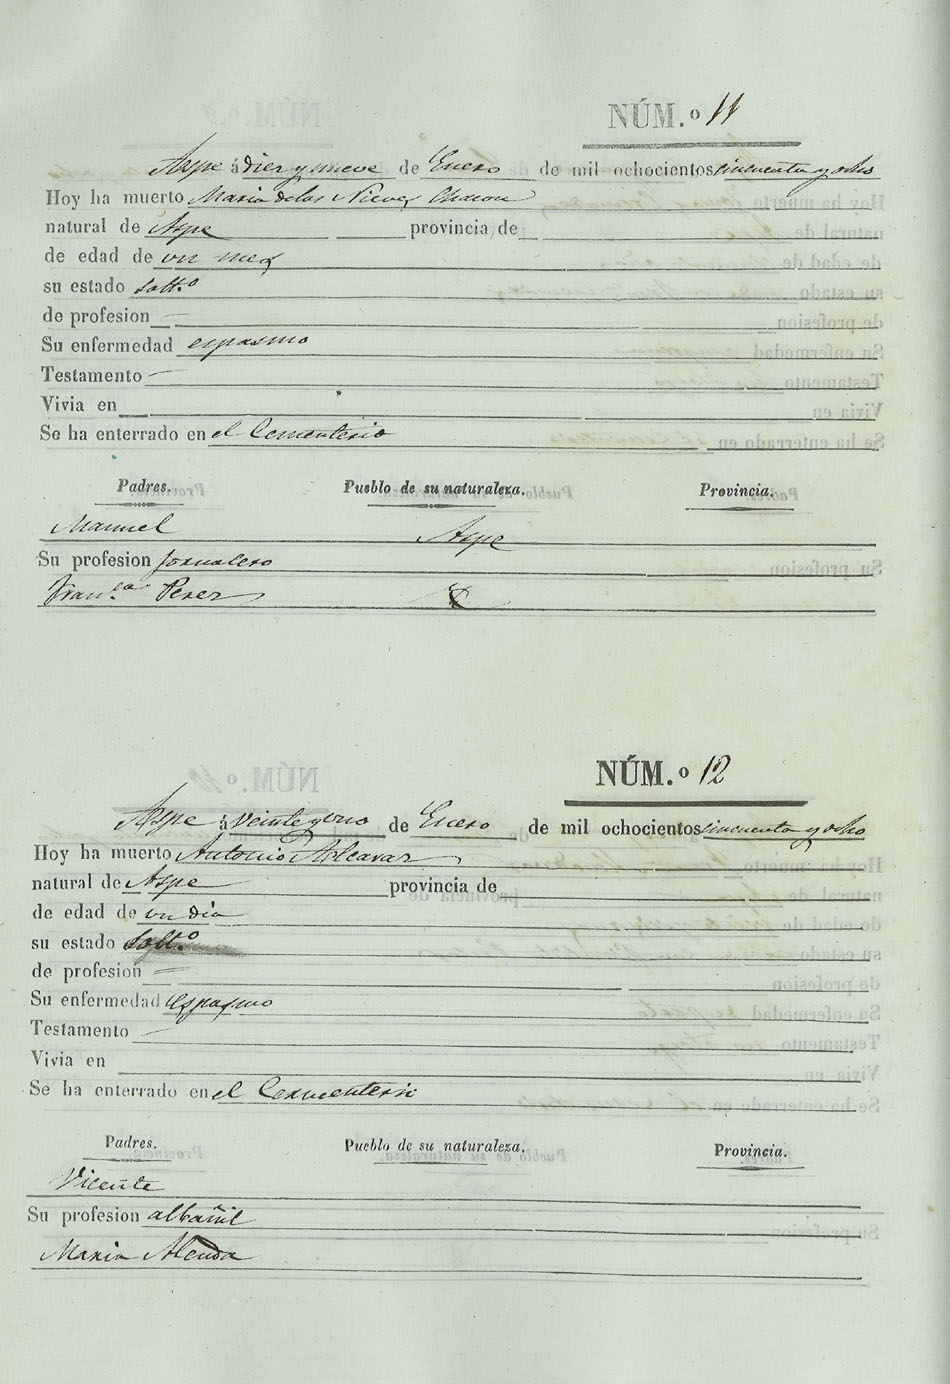 NÚM.º 11
Aspe á diez y nueve de Enero de mil ochocientos cincuenta y ocho
Hoy ha muerto Maria de las Nieves Chacon
natural de Aspe provincia de
de edad de un mes
su estado Solt.º
de profesion —
Su enfermedad espasmo
Testamento —
Vivia en
Se ha enterrado en el Cementerio
Padres. Pueblo de su naturaleza. Provincia.
Manuel Aspe
Su profesion jornalero
Fran.ca Perez
NÚM.º 12
Aspe á veinte y uno de Enero de mil ochocientos cincuenta y ocho
Hoy ha muerto Antonio Alcaraz
natural de Aspe provincia de
de edad de un dia
su estado Solt.º
de profesion —
Su enfermedad espasmo
Testamento —
Vivia en
Se ha enterrado en el Cementerio
Padres. Pueblo de su naturaleza. Provincia.
Vicente
Su profesion albañil
Maria Alenda